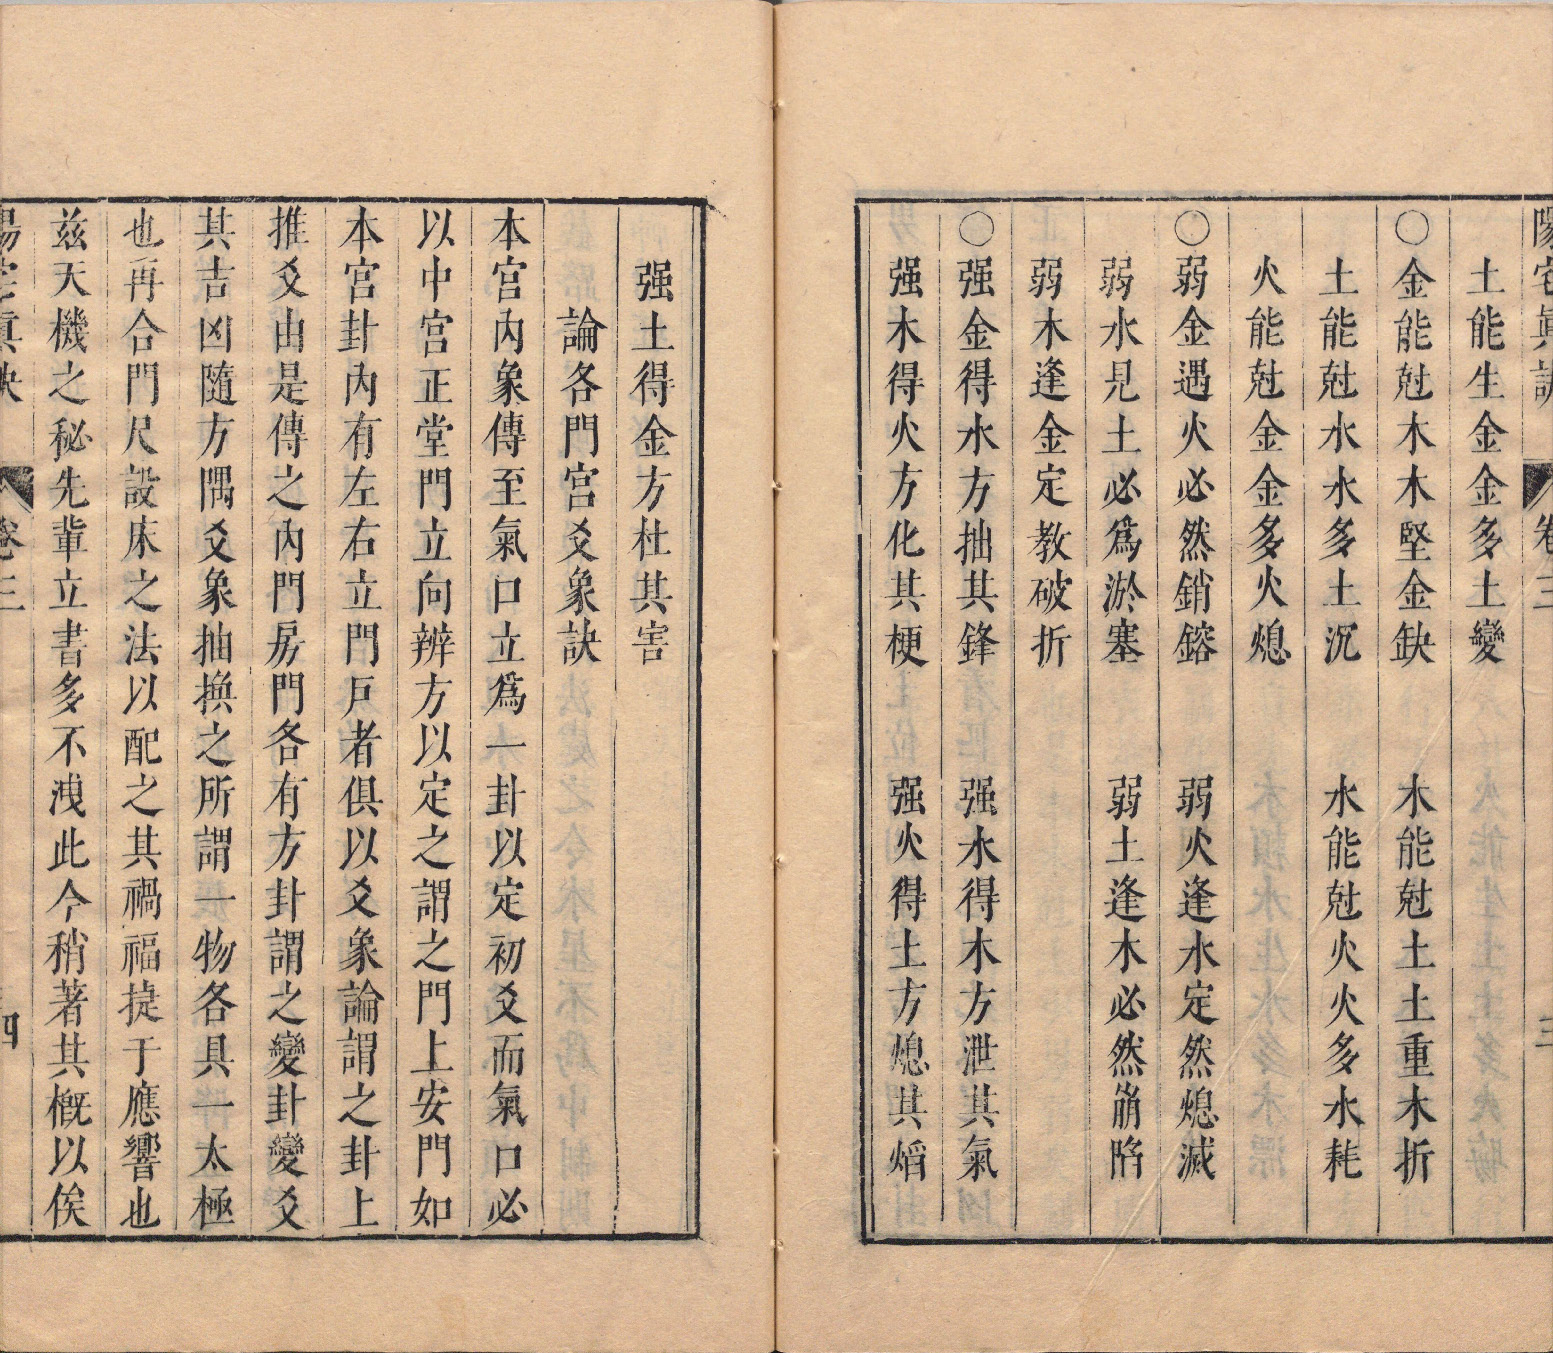 陽宅眞訣 卷三 三
土能生金金多土變
〇金能尅木木堅金缺 木能尅土土重木折
土能尅水水多土沉 水能尅火火多水耗
火能尅金金多火熄
〇弱金遇火必然銷鎔 弱火逢水定然熄滅
弱水見土必爲淤塞 弱土逢木必然崩陷
弱木逢金定教破折
〇强金得水方抽其鋒 强水得木方泄其氣
强木得火方化其梗 强火得土方熄其熖
强土得金方杜其害
論各門宮爻象訣
本宮內象傳至氣口立爲一卦以定初爻而氣口必
以中宮正堂門立向辨方以定之謂之門上安門如
本宮卦內有左右立門戶者俱以爻象論謂之卦上
推爻由是傳之內門房門各有方卦謂之變卦變爻
其吉凶隨方隅爻象抽換之所謂一物各具一太極
也再合門尺設床之法以配之其禍福捷于應響也
茲天機之秘先軰立書多不洩此今稍著其槪以俟
陽宅眞訣 卷三 四